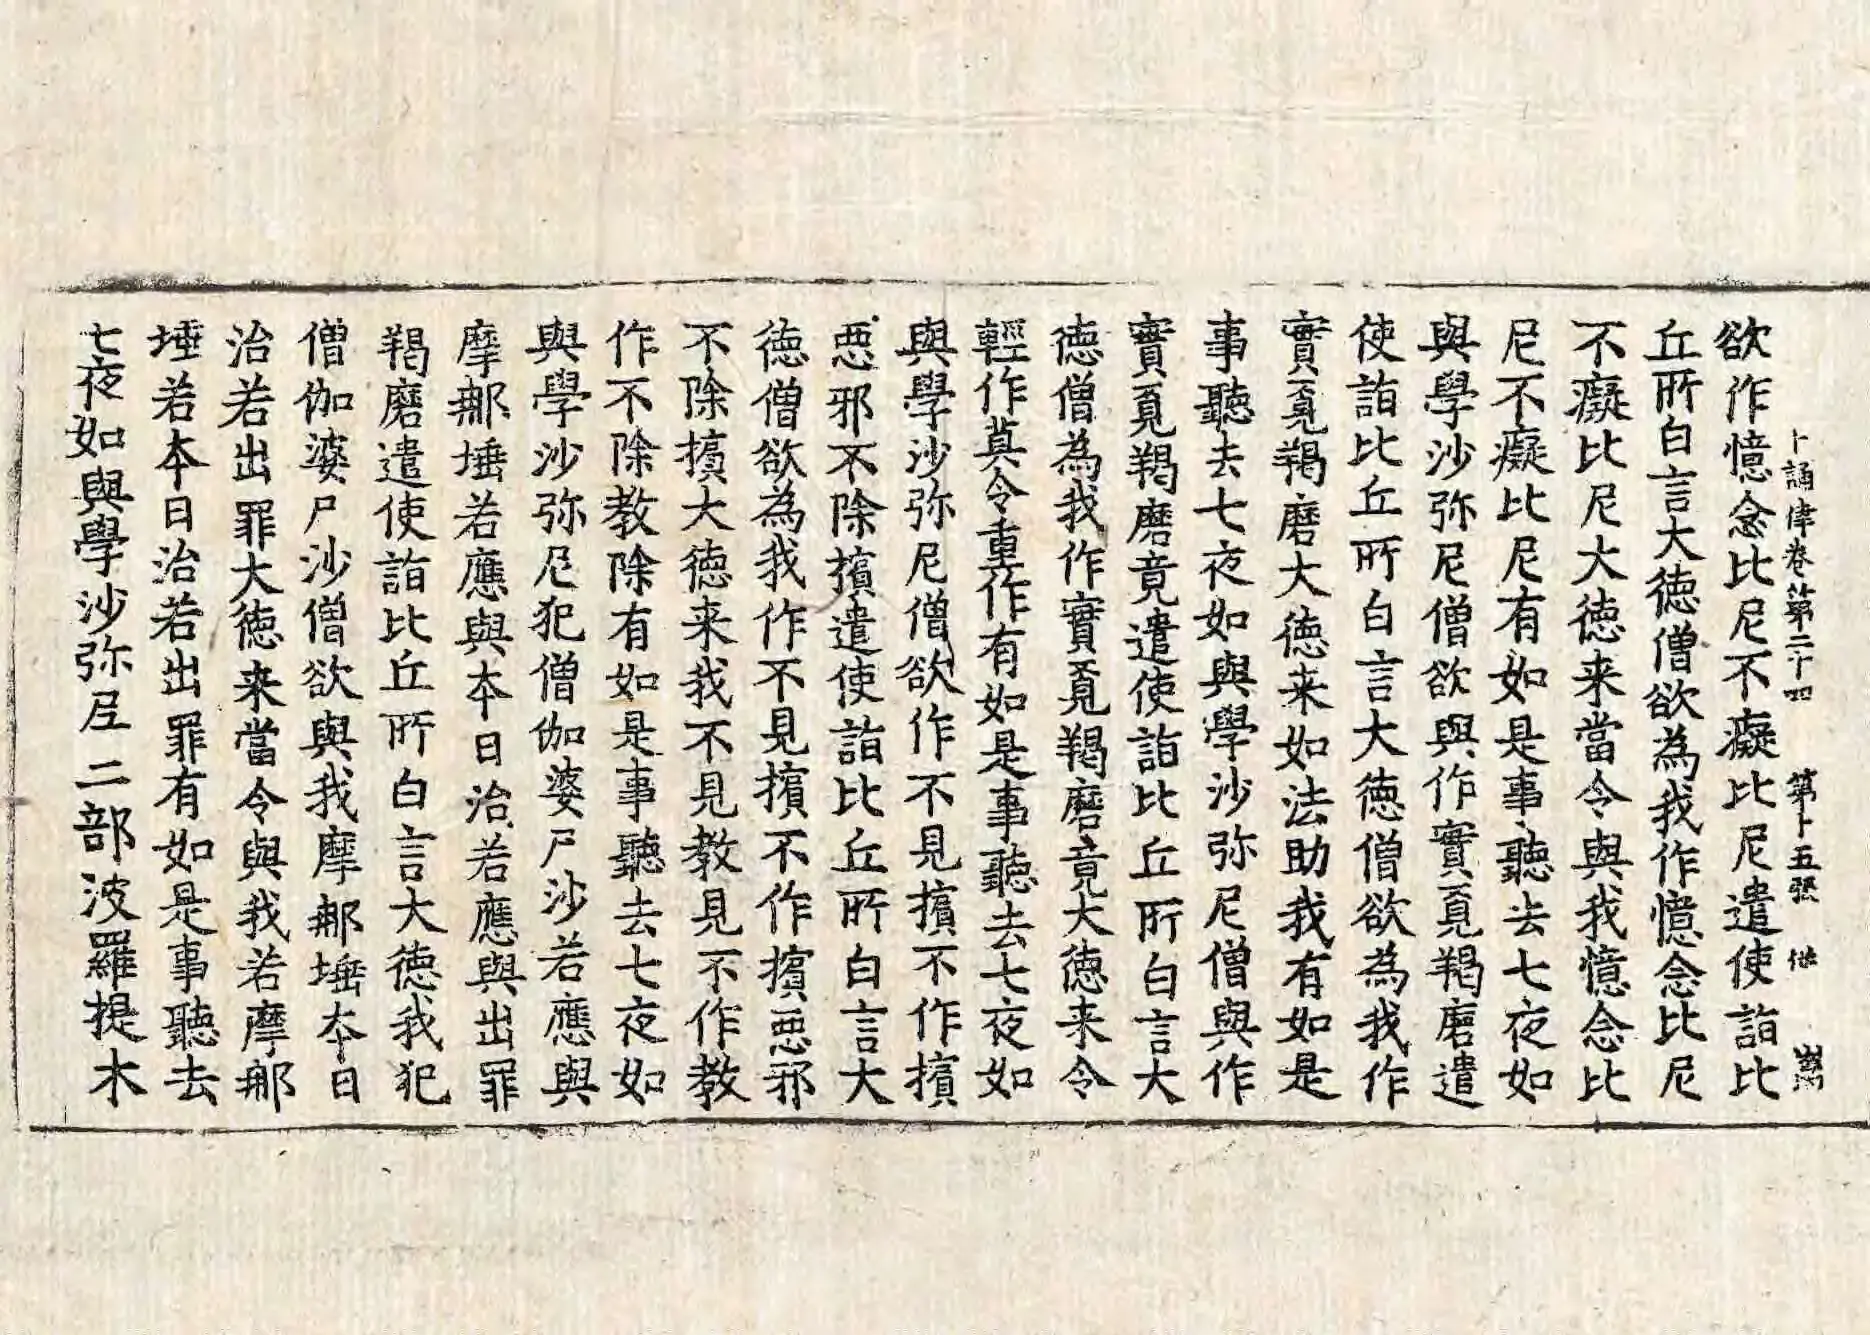 十誦律卷第二十四 第十五張
欲作憶念比尼不癡比尼遣使詣比
丘所白言大徳僧欲為我作憶念比尼
不癡比尼大徳来當令與我憶念比
尼不癡比尼有如是事聽去七夜如
與學沙弥尼僧欲與作實覓羯磨遣
使詣比丘所白言大徳僧欲為我作
實覓羯磨大徳来如法助我有如是
事聽去七夜如與學沙弥尼僧與作
實覓羯磨竟遣使詣比丘所白言大
徳僧為我作實覓羯磨竟大徳来令
輕作莫令重作有如是事聽去七夜如
與學沙弥尼僧欲作不見擯不作擯
惡邪不除擯遣使詣比丘所白言大
徳僧欲為我作不見擯不作擯惡邪
不除擯大徳来我不見教見不作教
作不除教除有如是事聽去七夜如
與學沙弥尼犯僧伽婆尸沙若應與
摩那埵若應與本日治若應與出罪
羯磨遣使詣比丘所白言大徳我犯
僧伽婆尸沙僧欲與我摩那埵本日
治若出罪大徳来當令與我若摩那
埵若本日治若出罪有如是事聽去
七夜如與學沙弥尼二部波羅提木